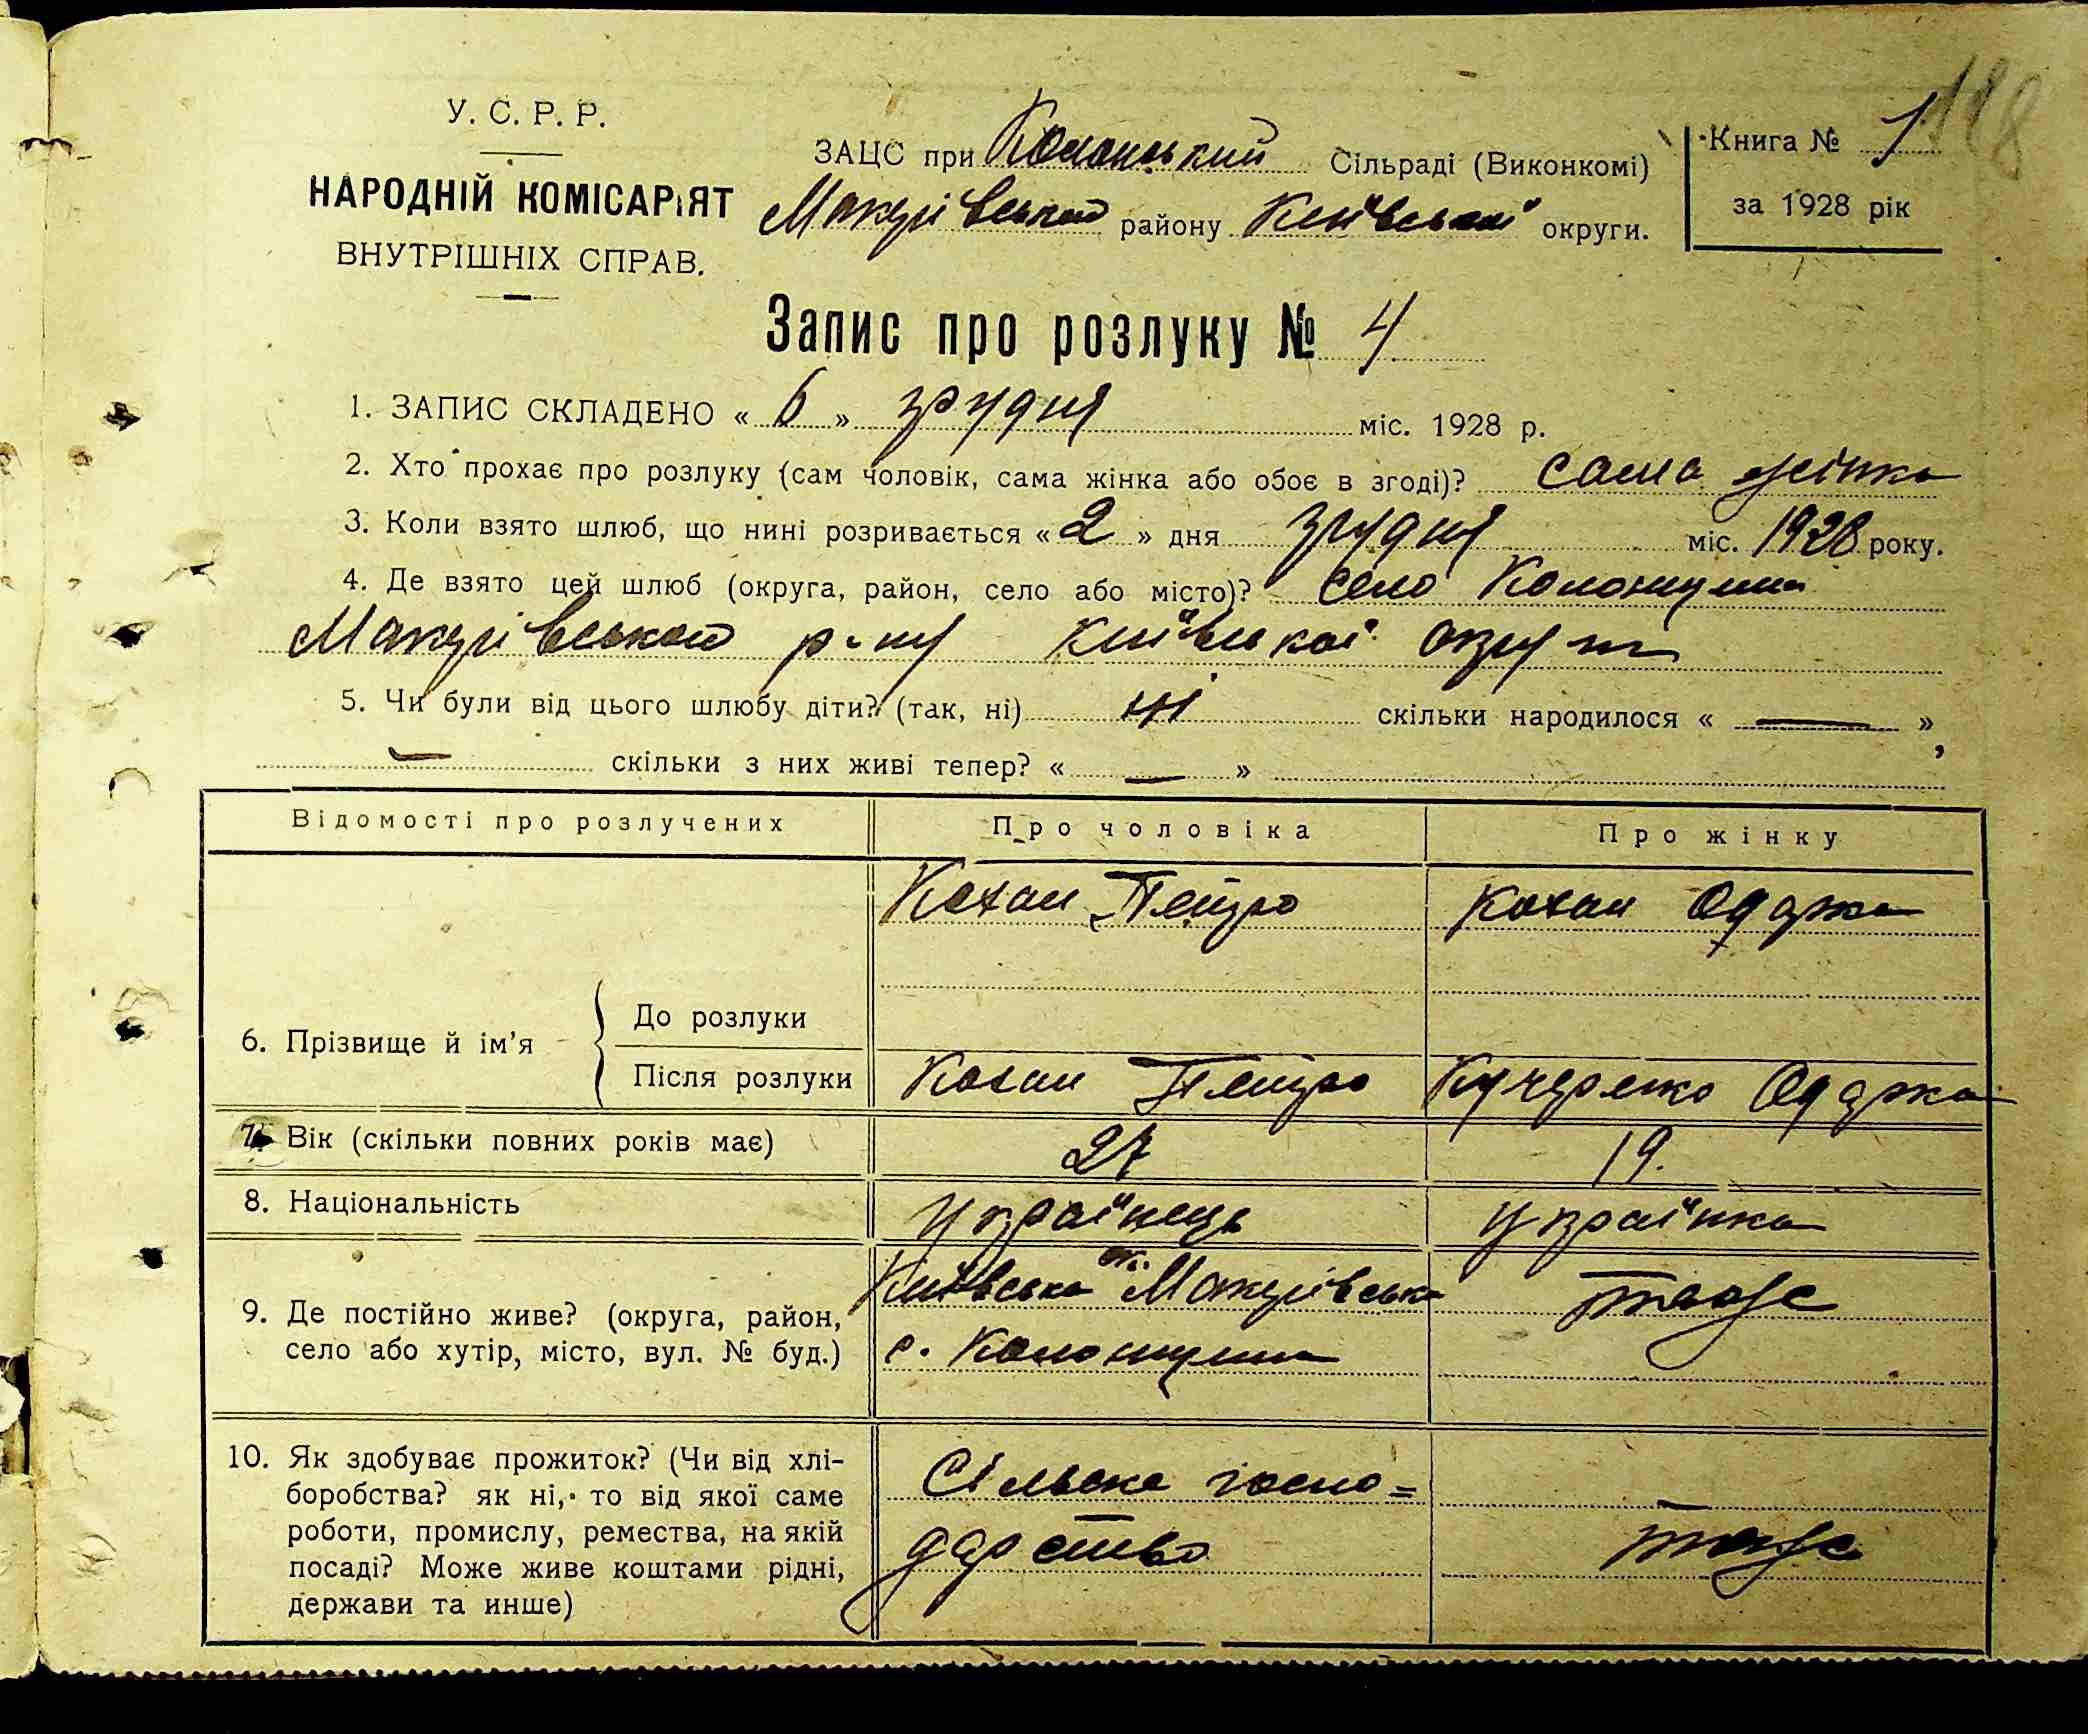 У. С. Р. Р.
НАРОДНІЙ КОМІСАРІЯТ
ВНУТРІШНІХ СПРАВ.
ЗАЦС при Колонський Сільраді (Виконкомі)
Макарівського району Київської округи.
Книга № 1
за 1928 рік
Запис про розлуку № 4
1. ЗАПИС СКЛАДЕНО « 6 » грудня міс. 1928 р.
2. Хто прохає про розлуку (сам чоловік, сама жінка або обоє в згоді)? сама жінка
3. Коли взято шлюб, що нині розривається « 2 » дня грудня міс. 1928 року.
4. Де взято цей шлюб (округа, район, село або місто)? село Колонщина
Макарівського р-ну Київської округи
5. Чи були від цього шлюбу діти? (так, ні) ні скільки народилося « — »,
— скільки з них живі тепер? « — »
Відомості про розлучених Про чоловіка Про жінку
Кохан Петро Кохан Одарка
6. Прізвище й ім'я До розлуки
Після розлуки Кохан Петро Кучеренко Одарка
7. Вік (скільки повних років має) 27 19.
8. Національність українець українка
9. Де постійно живе? (округа, район, Київська ок. Макарівськ тоже
село або хутір, місто, вул. № буд.) с. Колонщина
10. Як здобуває прожиток? (Чи від хлі-
боробства? як ні, то від якої саме Сільське госпо=
роботи, промислу, ремества, на якій дарство тоже
посаді? Може живе коштами рідні,
держави та инше)